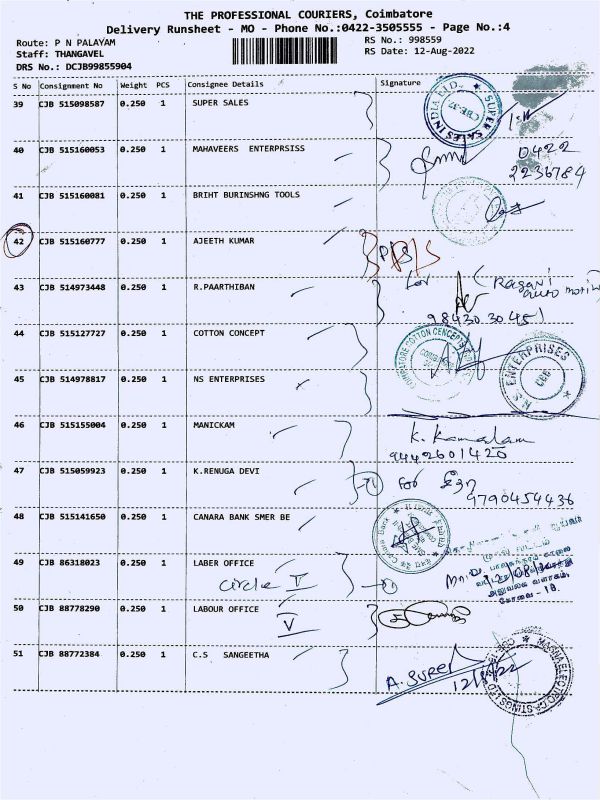 THE PROFESSIONAL COURIERS, Coimbatore
Delivery Runsheet - MO - Phone No.:0422-3505555 - Page No.:4
Route: P N PALAYAM
RS No.: 998559
Staff: THANGAVEL
RS Date: 12-Aug-2022
DRS No.: DCJB99855904
S No Consignment No Weight PCS Consignee Details Signature
39 CJB 515098587 0.250 1 SUPER SALES
SUPER SALES INDIA LTD. CBE-37
40 CJB 515160053 0.250 1 MAHAVEERS ENTERPRSISS
0422
2236784
41 CJB 515160081 0.250 1 BRIHT BURINSHNG TOOLS
42 CJB 515160777 0.250 1 AJEETH KUMAR
43 CJB 514973448 0.250 1 R.PAARTHIBAN
for
(Ragavi
auto
98430.30451
44 CJB 515127727 0.250 1 COTTON CONCEPT
COIMBATORE
45 CJB 514978817 0.250 1 NS ENTERPRISES
N.S. ENTERPRISES
46 CJB 515155004 0.250 1 MANICKAM
K. Kamalam
9442601420
47 CJB 515059923 0.250 1 K.RENUGA DEVI
for
9790454436
48 CJB 515141650 0.250 1 CANARA BANK SMER BE
Canara Bank
49 CJB 86318023 0.250 1 LABER OFFICE
circle V
அலுவலக வளாகம்,
கோவை - 18.
50 CJB 88778290 0.250 1 LABOUR OFFICE
V
51 CJB 88772384 0.250 1 C.S SANGEETHA
A. SURE
12/8/22
MAGNA ELECTRO CASTINGS LTD